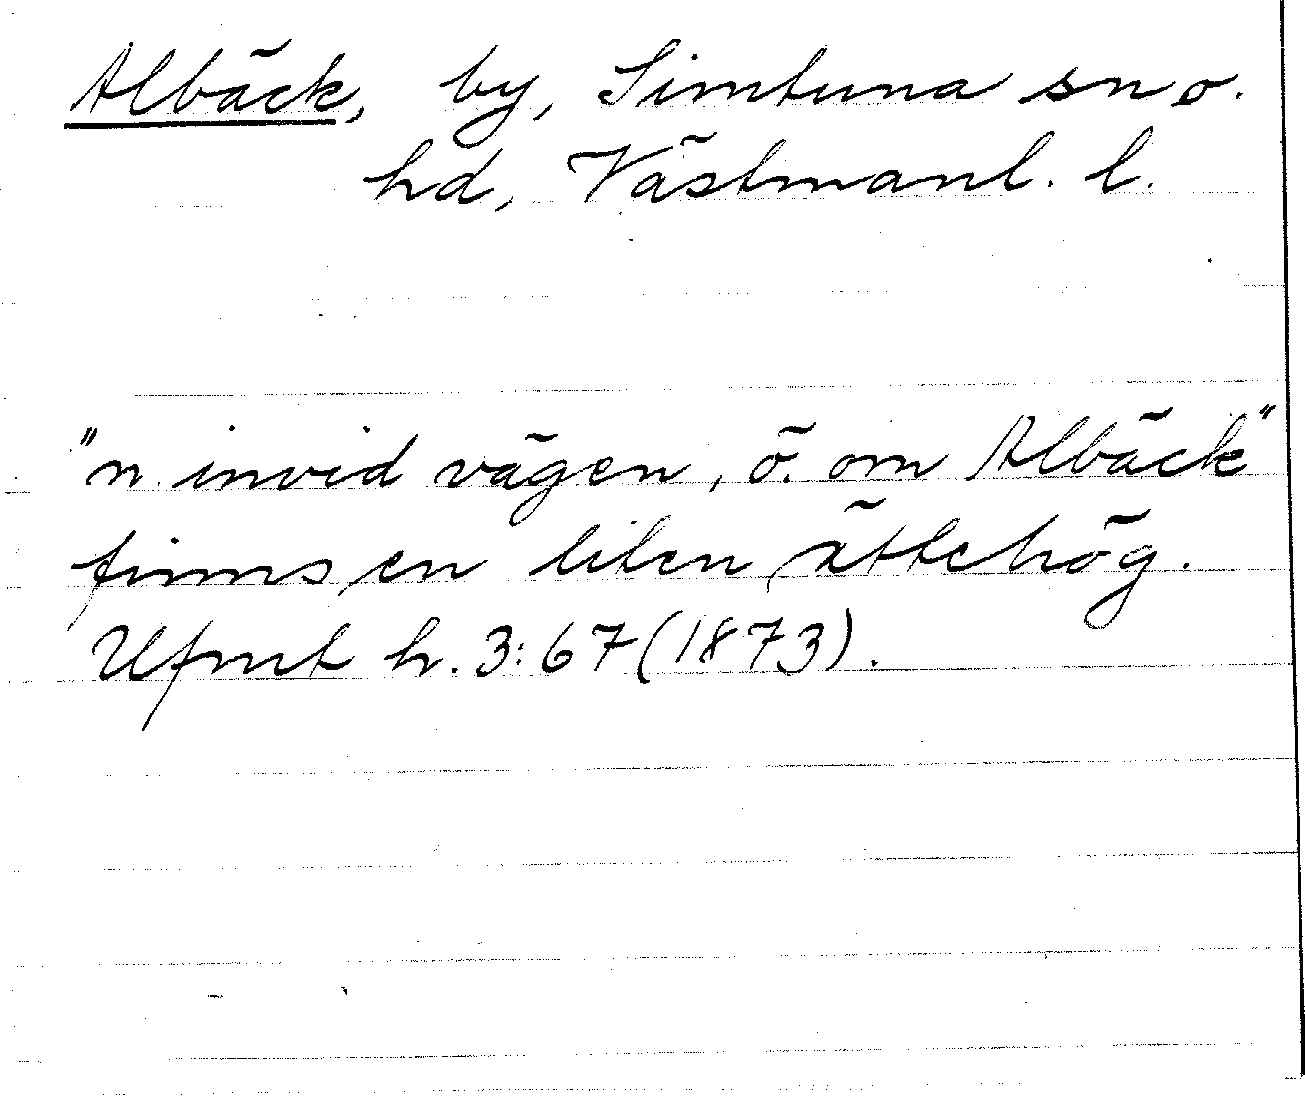 Albäck, by, Simtuna sn o.
hd, Västmanl. l.
"n. invid vägen, ö. om Albäck"
finns en liten ättehög.
Ufmt h. 3:67 (1873).